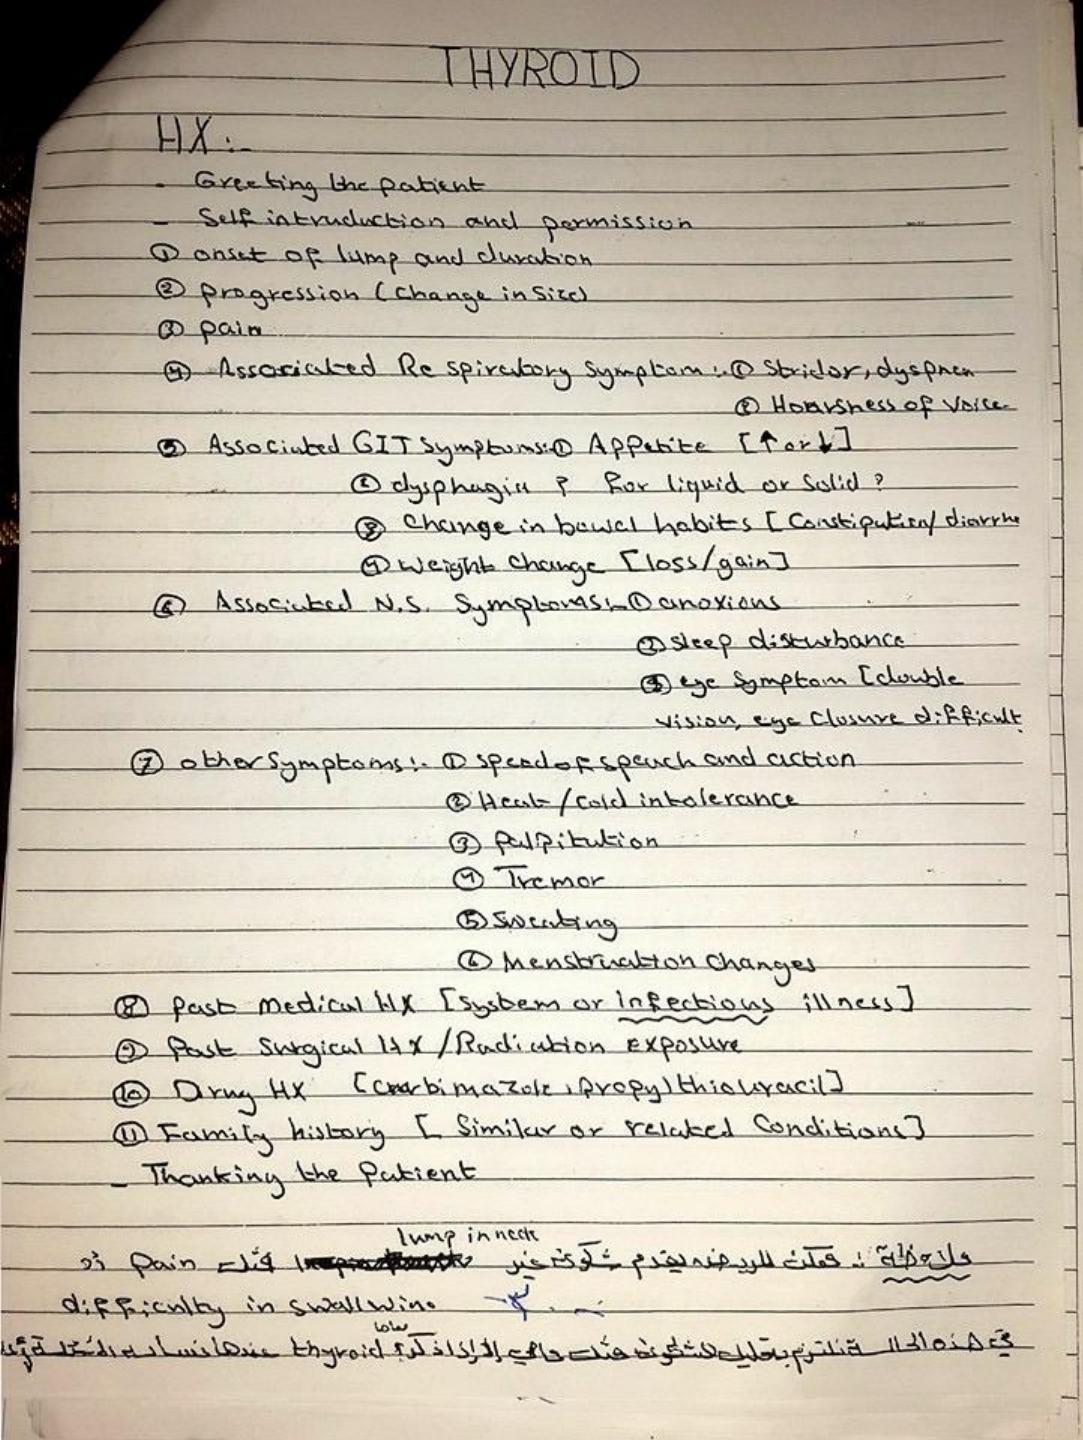 THYROID
HX:-
- Greeting the patient
- Self intruduction and permission
① onset of lump and duration
② progression (change in size)
③ pain
④ Associated Respiratory Symptom:- ① Stridor, dyspnea
② Hoarsness of voice
⑤ Associated GIT Symptoms:① Appetite [↑ or ↓]
② dysphagia ? for liquid or solid ?
③ change in bowel habits [Constipation/ diarrhe
④ Weight change [loss/gain]
⑥ Associated N.S. Symptoms:- ① anoxious
② sleep disturbance
③ eye symptom [double
vision, eye closure difficult
⑦ other symptoms:- ① speed of speach and action
② Heat/cold intolerance
③ Palpitation
④ Tremor
⑤ Sweating
⑥ Menstruation changes
⑧ Past Medical HX [System or infectious illness]
⑨ Past Surgical HX/Radiation Exposure
⑩ Drug HX [Carbimazole, propylthiouracil]
⑪ Family history [Similar or related Conditions]
- Thanking the Patient
lump in neck
ملاحظة :- ممكن المريض يقدم شكوى غير مثل pain or
difficulty in swallwing
في هذه الحالة نلتزم بتحليل الشكوى thyroid